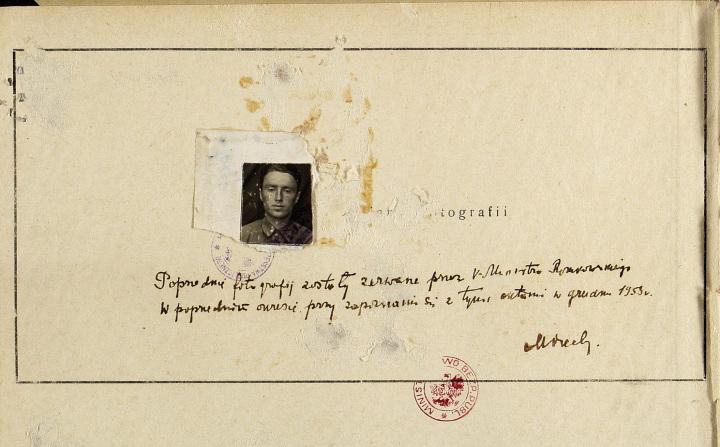 tografii
Poprzednie fotografij zostały zerwane przez V-Ministra Romkowskiego
w poprzednim okresie przy zapoznaniu się z tymi aktami w grudniu 1953 r.
MINIST WO BEZP. PUBL.